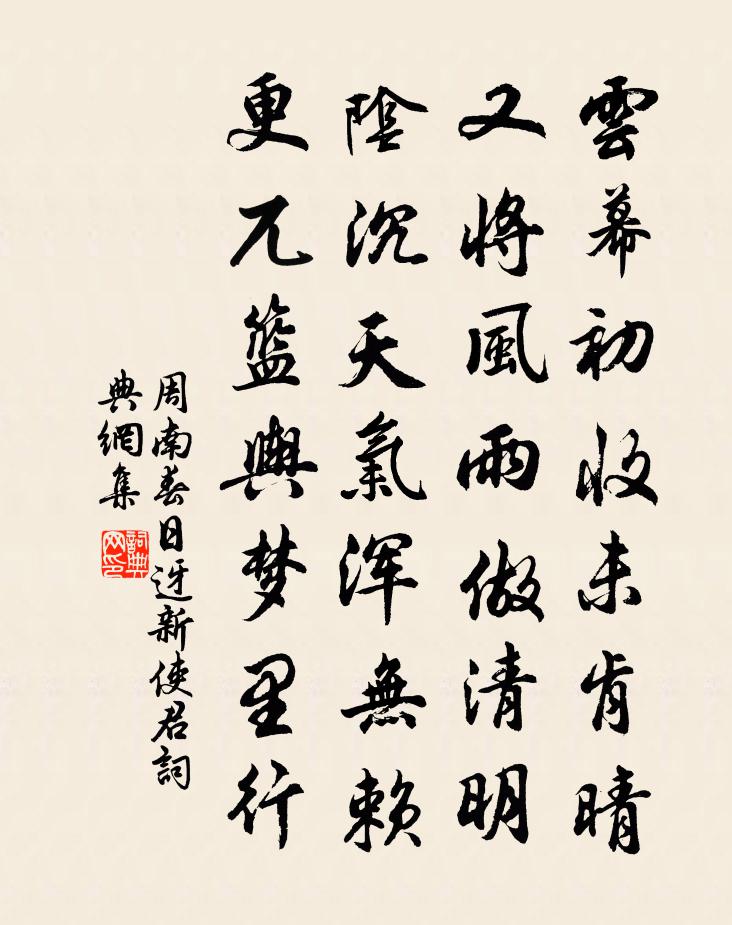 雲幕初收未肯晴
又將風雨做清明
陰沉天氣浑無賴
更兀籃輿梦里行
周南春日迓新使君詞
典網集
詞典网印